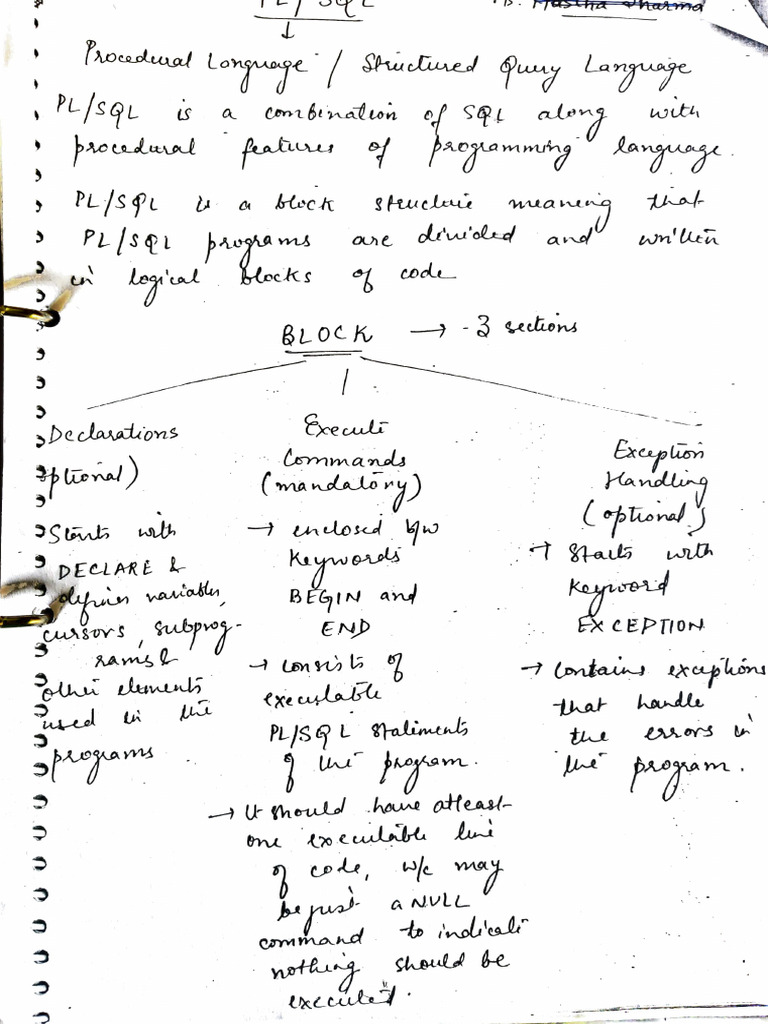 PL/SQL
Procedural Language / Structured Query Language
PL/SQL is a combination of SQL along with
procedural features of programming language.
PL/SQL is a block structure meaning that
PL/SQL programs are divided and written
in logical blocks of code
BLOCK → - 3 sections
Declarations
optional)
Starts with
DECLARE &
defines variables,
cursors, subprog-
rams &
other elements
used in the
programs
Execute
Commands
(mandatory)
→ enclosed b/w
Keywords
BEGIN and
END
→ consists of
executable
PL/SQL statements
of the program.
→ It should have atleast
one executable line
of code, w/c may
be just a NULL
command to indicate
nothing should be
executed.
Exception
Handling
(optional)
→ starts with
Keyword
EXCEPTION
→ contains exceptions
that handle
the errors in
the program.